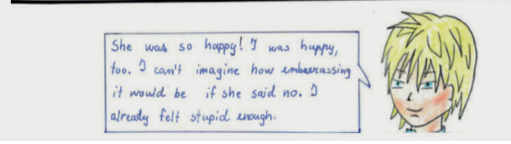 She was so happy! I was happy,
too. I can't imagine how embeerassing
it would be if she said no. I
already felt stupid enough.